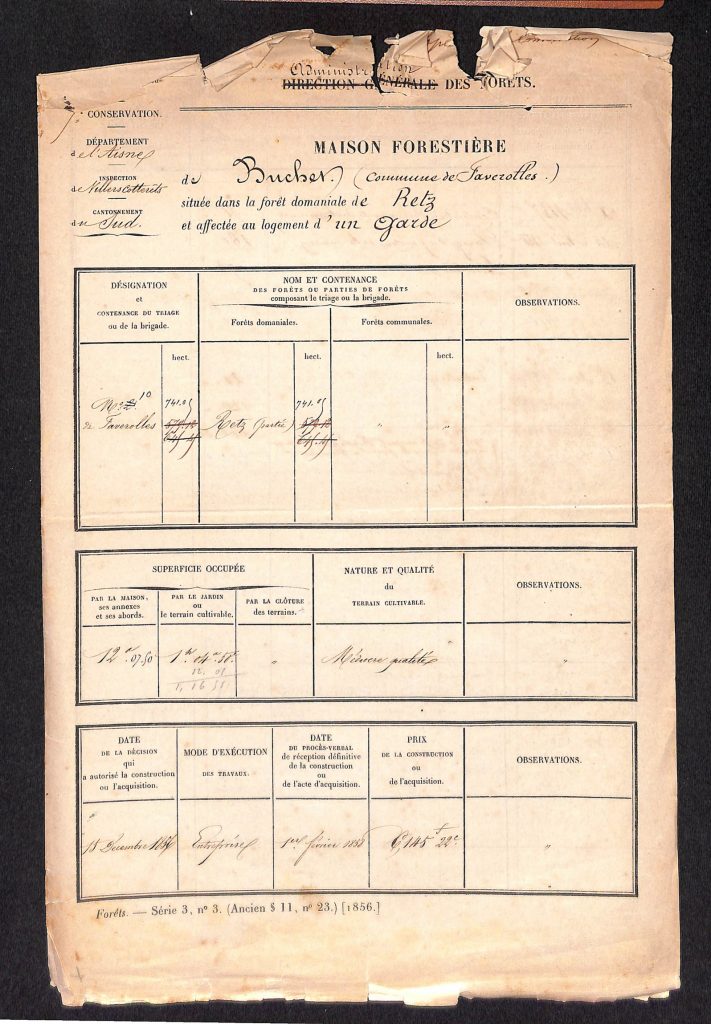 Administration
DIRECTION GÉNÉRALE DES FORÊTS.
7e CONSERVATION.
DÉPARTEMENT
de l'Aisne
INSPECTION
de Villers cotterêts
CANTONNEMENT
du Sud.
MAISON FORESTIÈRE
de Buchet (commune de Faverolles.)
située dans la forêt domaniale de Retz
et affectée au logement d'un Garde
DÉSIGNATION
et
CONTENANCE DU TRIAGE
ou de la brigade.
NOM ET CONTENANCE
DES FORÊTS OU PARTIES DE FORÊTS
composant le triage ou la brigade.
Forêts domaniales.
Forêts communales.
OBSERVATIONS.
hect.
hect.
hect.
No 10
de Faverolles
741.05
Retz (partie)
741.05
" "
SUPERFICIE OCCUPÉE
PAR LA MAISON,
ses annexes
et ses abords.
PAR LE JARDIN
ou
le terrain cultivable.
PAR LA CLÔTURE
des terrains.
NATURE ET QUALITÉ
du
TERRAIN CULTIVABLE.
OBSERVATIONS.
12a 07.50
1h 04a 50c
12. 01
1, 16 51
"
Médiocre qualité
"
DATE
DE LA DÉCISION
qui
a autorisé la construction
ou l'acquisition.
MODE D'EXÉCUTION
DES TRAVAUX.
DATE
DU PROCÈS-VERBAL
de réception définitive
de la construction
ou
de l'acte d'acquisition.
PRIX
DE LA CONSTRUCTION
ou
de l'acquisition.
OBSERVATIONS.
15 Décembre 1856
Entreprise
1er février 1858
6,145f 22c
"
Forêts. — Série 3, no 3. (Ancien § 11, no 23.) [1856.]